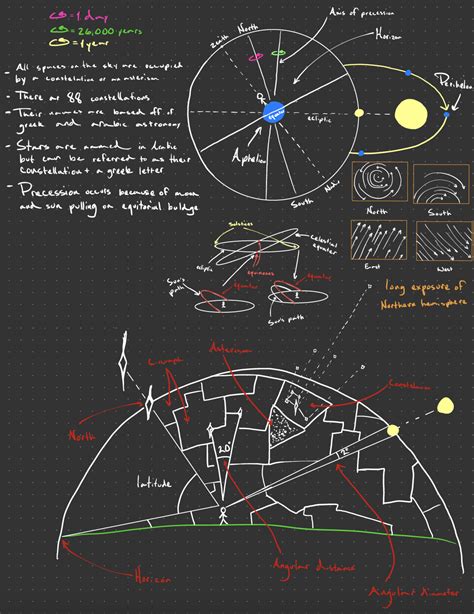 = 1 day
= 26,000 years
= 1 year
- All spaces on the sky are occupied
by a constellation or an asterism
- There are 88 constellations
- Their names are based off of
greek and arabic astronomy
- Stars are named in Arabic
but can be referred to as their
constellation + a greek letter
- Precession occurs because of moon
and sun pulling on equitorial buldge
Zenith
North
Axis of precession
Horizon
equator
ecliptic
Perihelion
Aphelion
South
Nadir
North
South
East
West
long exposure of
Northern hemisphere
solstices
celestial
equator
ecliptic
equinoxes
Sun's
path
equator
equator
Sun's path
Asterism
Constellation
North
20°
latitude
Horizon
Angular distance
Angular diameter